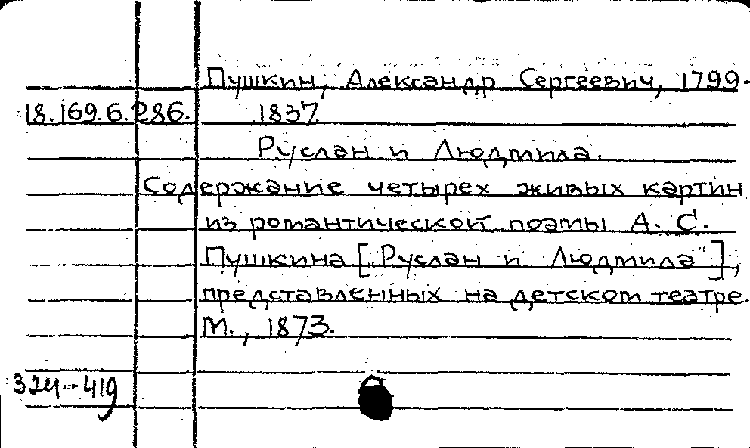 Пушкин, Александр Сергеевич, 1799-
18.169.6.286. 1837
Руслан и Людмила.
Содержание четырех живых картин
из романтической поэмы А. С.
Пушкина [„Руслан и Людмила"],
представленных на детском театре.
М., 1873.
324-419